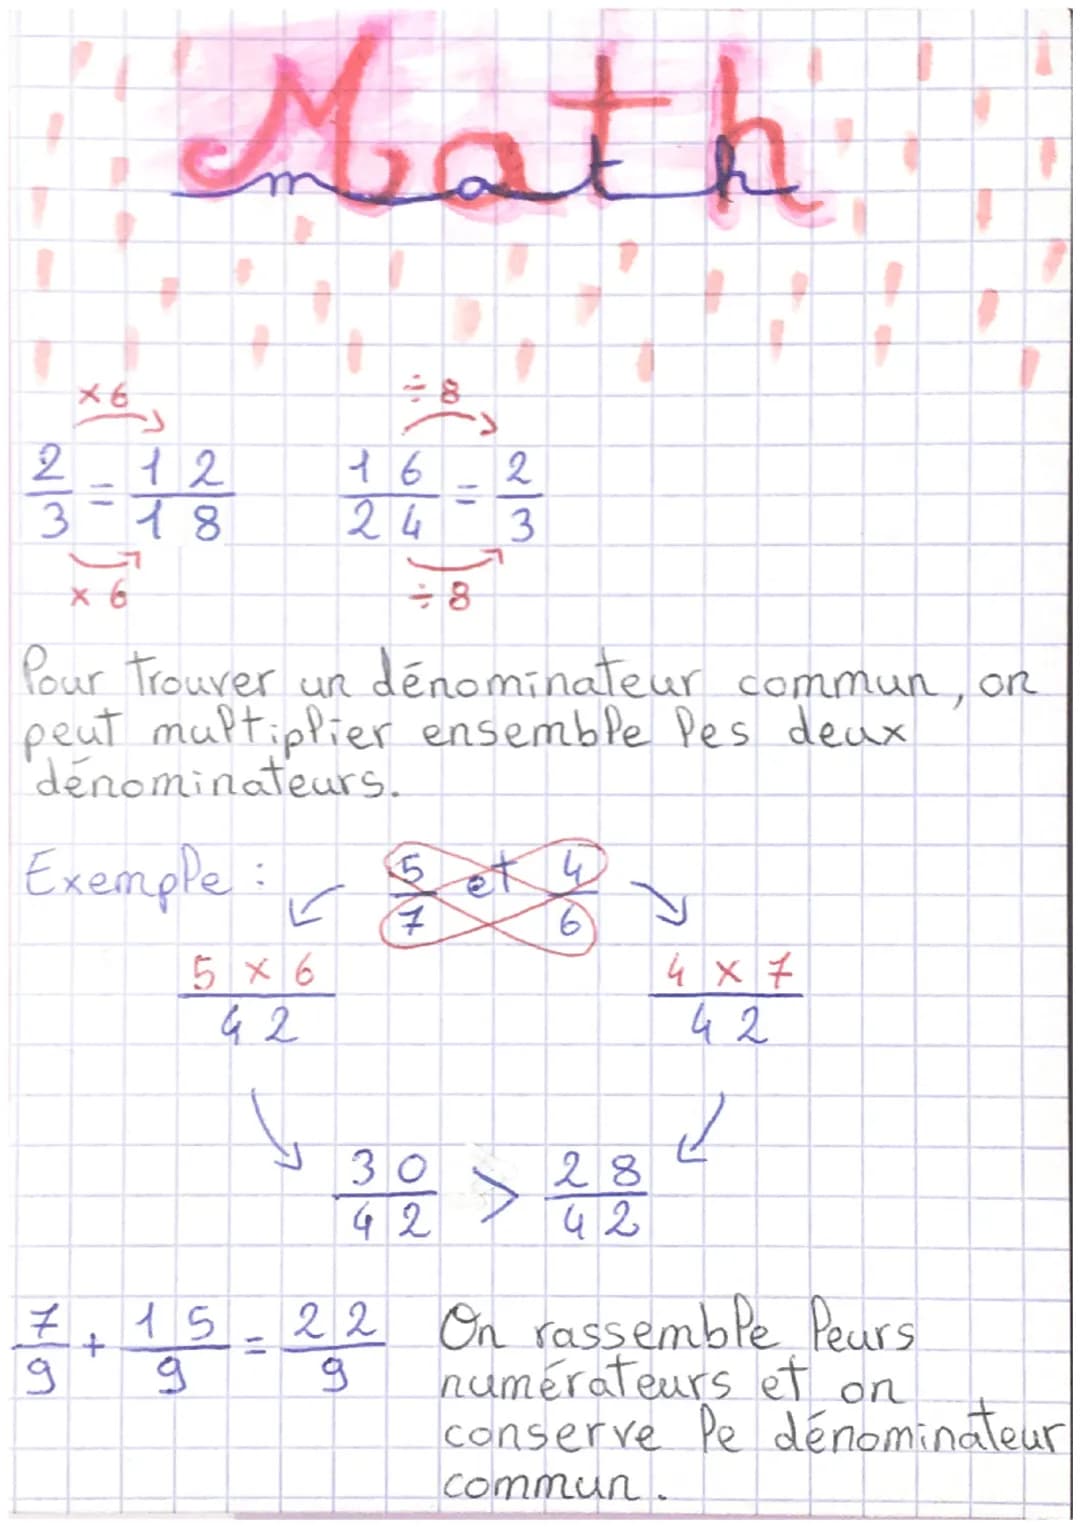 Math
math
×6 ÷8
2/3 = 12/18 16/24 = 2/3
×6 ÷8
Pour trouver un dénominateur commun, on
peut multiplier ensemble les deux
dénominateurs.
Exemple : 5/7 et 4/6
5 × 6/42 4 × 7/42
30/42 > 28/42
7/9 + 15/9 = 22/9
On rassemble leurs
numérateurs et on
conserve le dénominateur
commun.